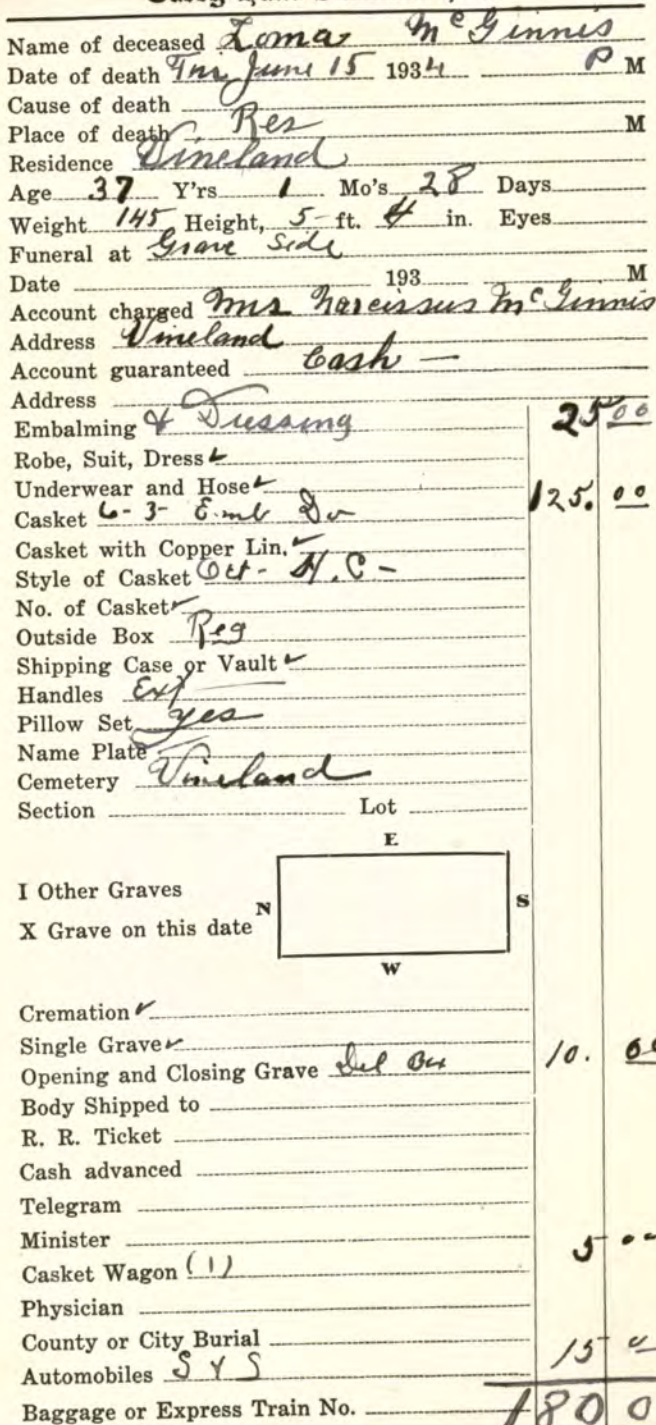 Name of deceased Loma McGinnis
Date of death June 15 1934 P M
Cause of death
Place of death Res M
Residence Vineland
Age 37 Y'rs 1 Mo's 28 Days
Weight 145 Height, 5 ft. 4 in. Eyes
Funeral at Grave Side
Date 193 M
Account charged Mrs Narcissus McGinnis
Address Vineland
Account guaranteed Cash —
Address
Embalming & Dressing 25 00
Robe, Suit, Dress ✓
Underwear and Hose ✓
Casket 6-3- Emb 125. 00
Casket with Copper Lin. ✓
Style of Casket Oct -
No. of Casket ✓
Outside Box Reg
Shipping Case or Vault ✓
Handles Ext
Pillow Set yes
Name Plate
Cemetery Vineland
Section Lot
E
I Other Graves
N S
X Grave on this date
W
Cremation ✓
Single Grave ✓
Opening and Closing Grave Del Box 10. 00
Body Shipped to
R. R. Ticket
Cash advanced
Telegram
Minister
Casket Wagon (1) 5 00
Physician
County or City Burial
Automobiles S Y S 15 00
Baggage or Express Train No. 180 0